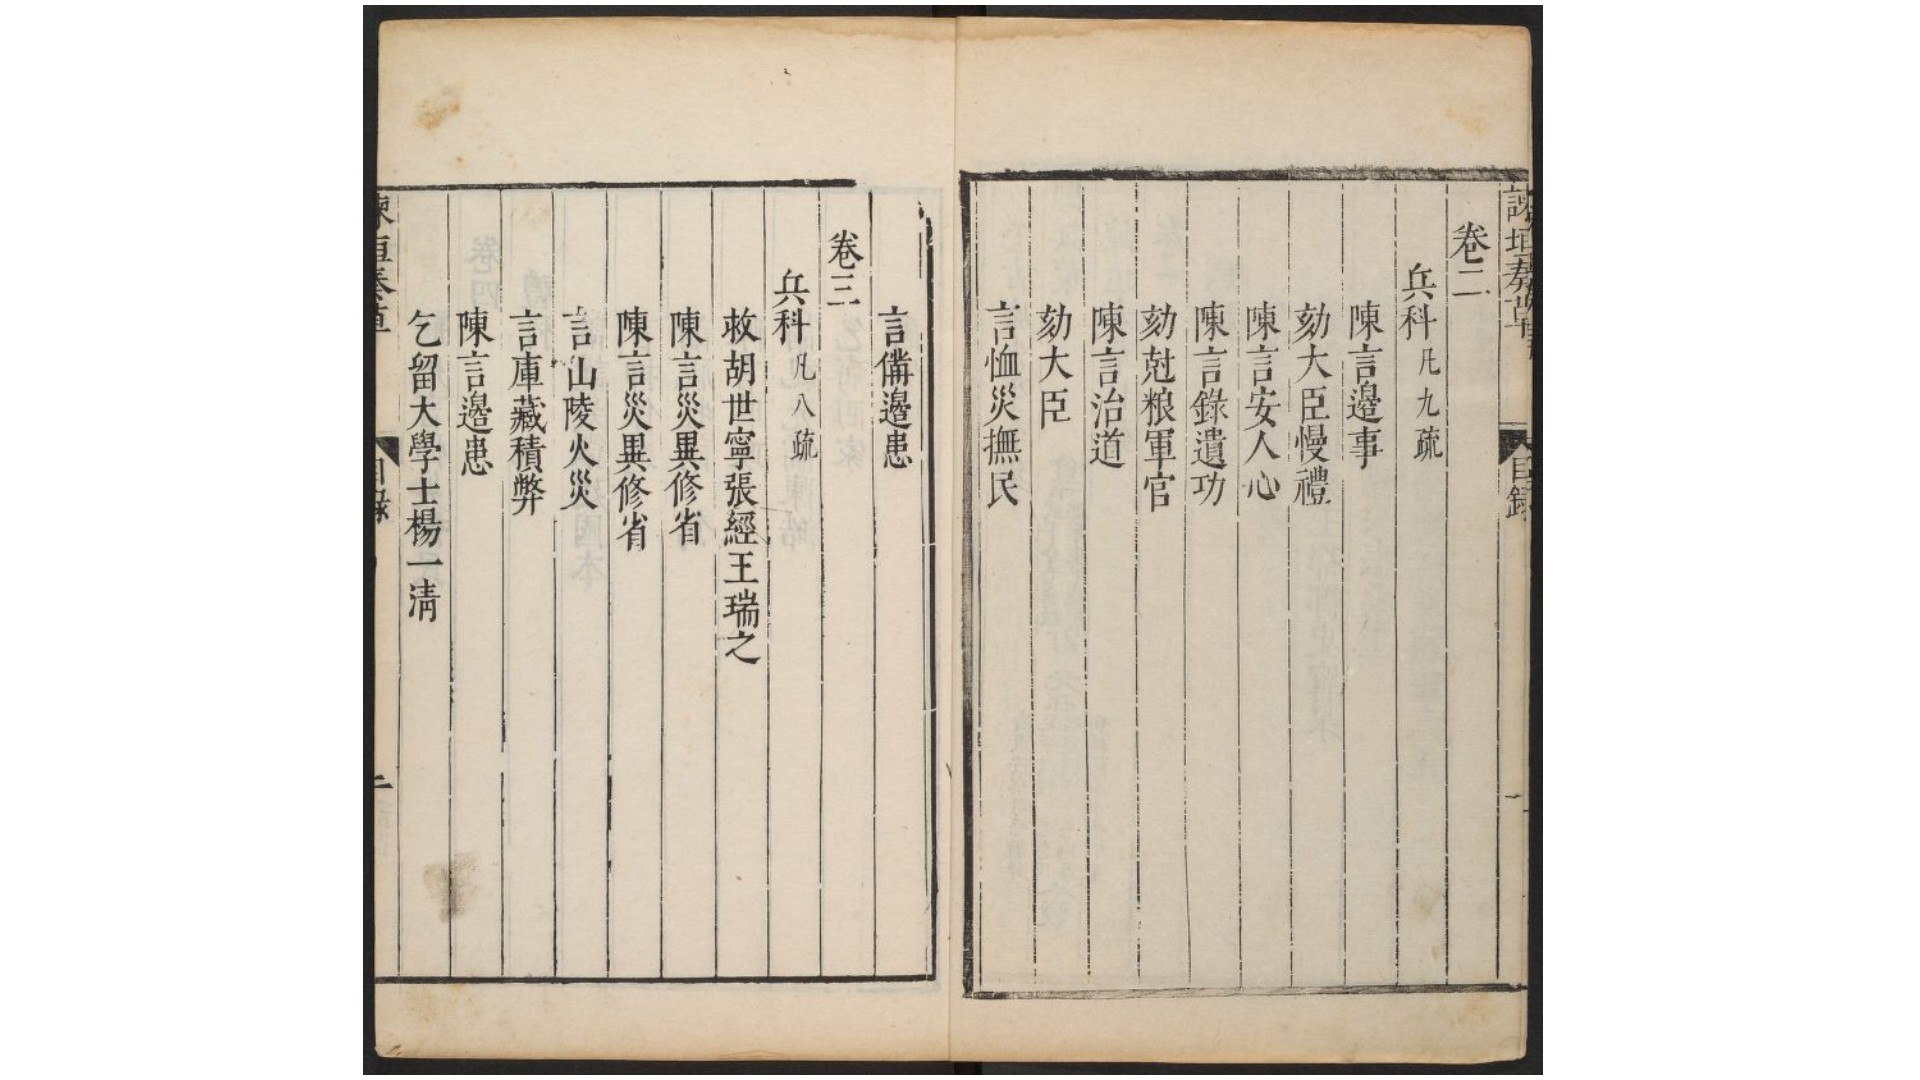 諫垣奏草
目錄
卷二
兵科凡九疏
陳言邊事
劾大臣慢禮
陳言安人心
陳言錄遺功
劾尅粮軍官
陳言治道
劾大臣
言恤災撫民
言備邊患
卷三
兵科凡八疏
救胡世寧張經王瑞之
陳言災異修省
陳言災異修省
言山陵火災
言庫藏積弊
陳言邊患
乞留大學士楊一清
諫垣奏草
目錄
二